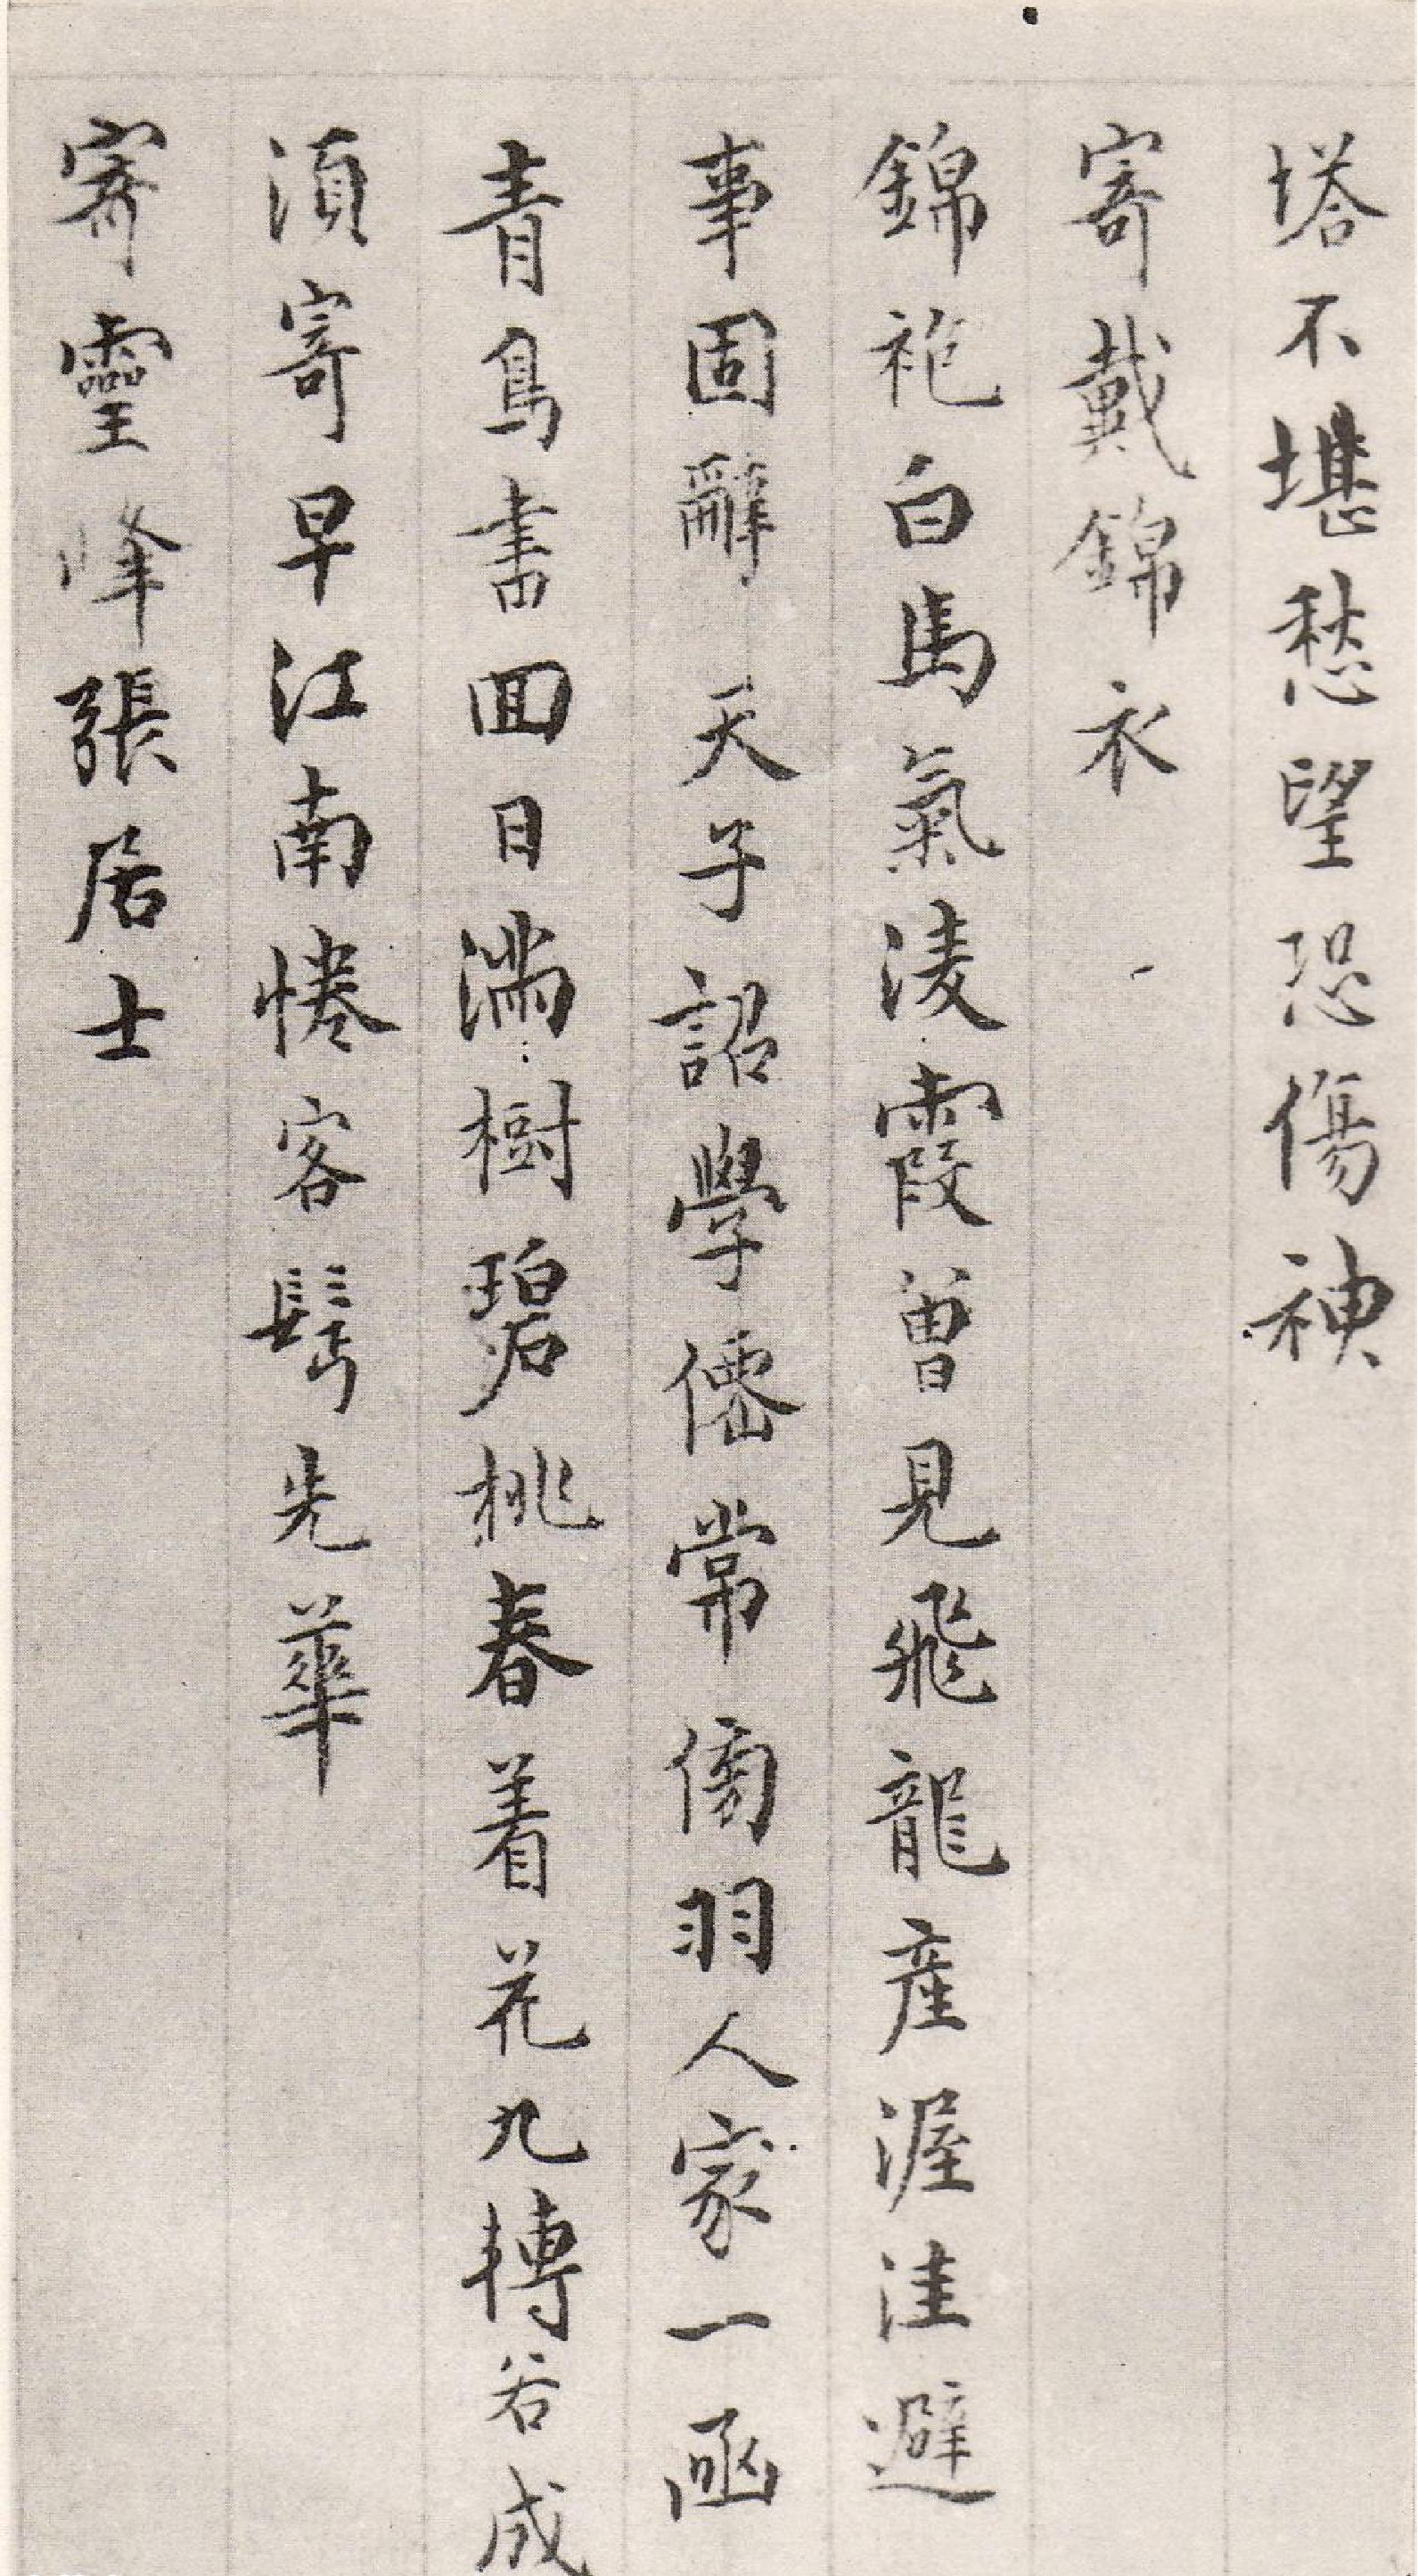 塔不堪愁望恐傷神
寄戴錦衣
錦袍白馬氣淩霞曾見飛龍產渥洼避
事固辭天子詔學僊常傍羽人家一函
青鳥書回日滿樹碧桃春着花九轉若成
須寄早江南惓客鬢先華
寄靈峰張居士